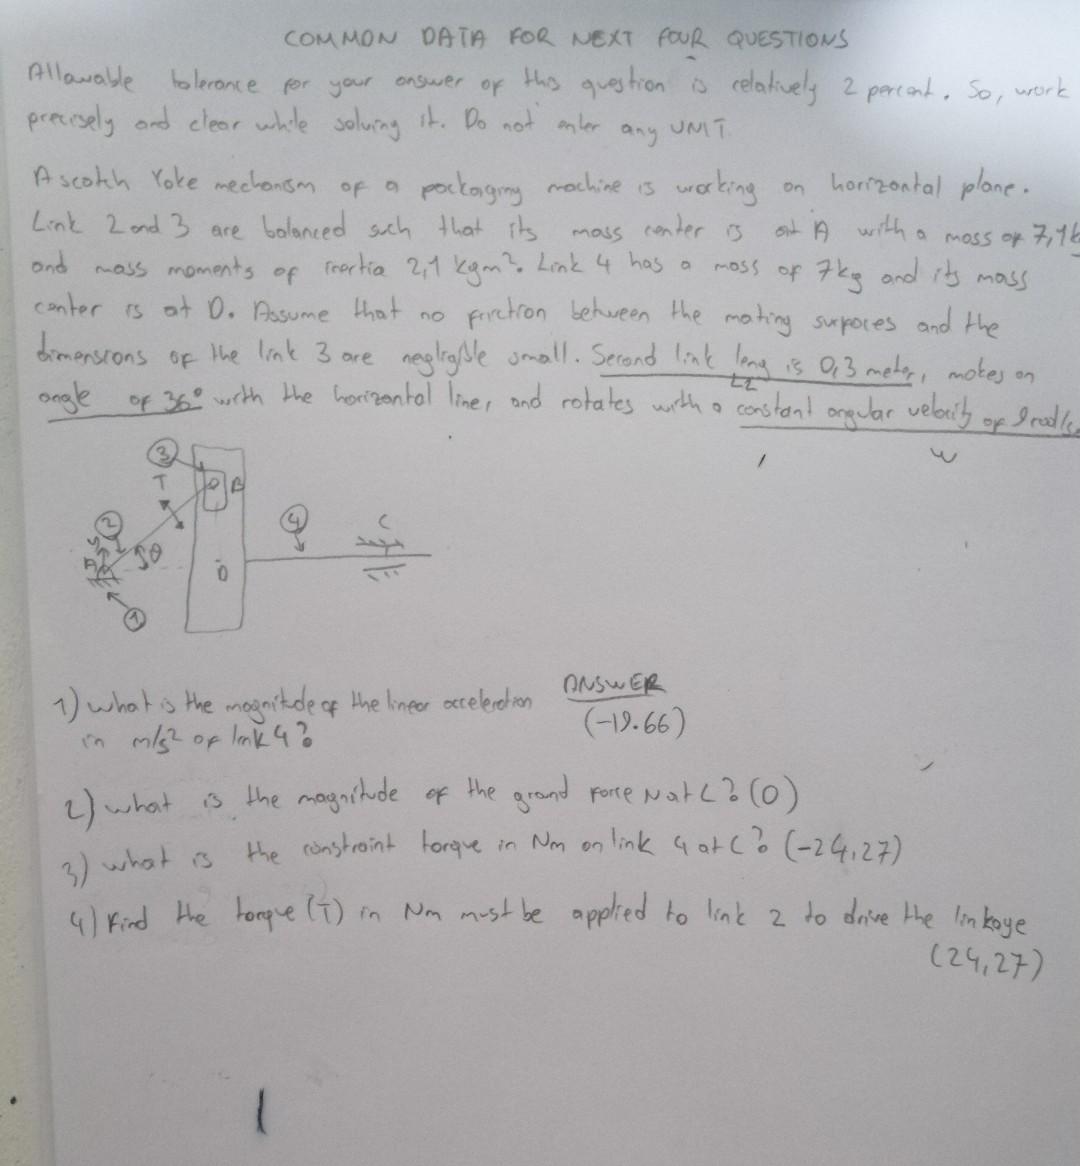 COMMON DATA FOR NEXT FOUR QUESTIONS
Allawable tolerance for your answer of this question is relatively 2 percent. So, work
precisely and clear while solving it. Do not enter any UNIT
A scotch Yoke mechanism of a packaging machine is working on horizontal plane.
Link 2 and 3 are balanced such that its mass center is at A with a mass of 7,1k
and mass moments of inertia 2,1 kgm². Link 4 has a mass of 7kg and its mass
center is at D. Assume that no friction between the mating surfaces and the
dimensions of the link 3 are negligible small. Second link leng is 0,3 meter, makes an
L2
angle of 36° with the horizontal line, and rotates with a constant angular velocity of 9rad/s
w
3
T
B
2
4
C
y
A
θ
D
1
1) what is the magnitude of the linear acceleration
in m/s² of link 4?
ANSWER
(-19.66)
2) what is the magnitude of the grand force N at C? (0)
3) what is the constraint torque in Nm on link 4 at C? (-24,27)
4) Find the torque (T) in Nm must be applied to link 2 to drive the linkage
(24,27)